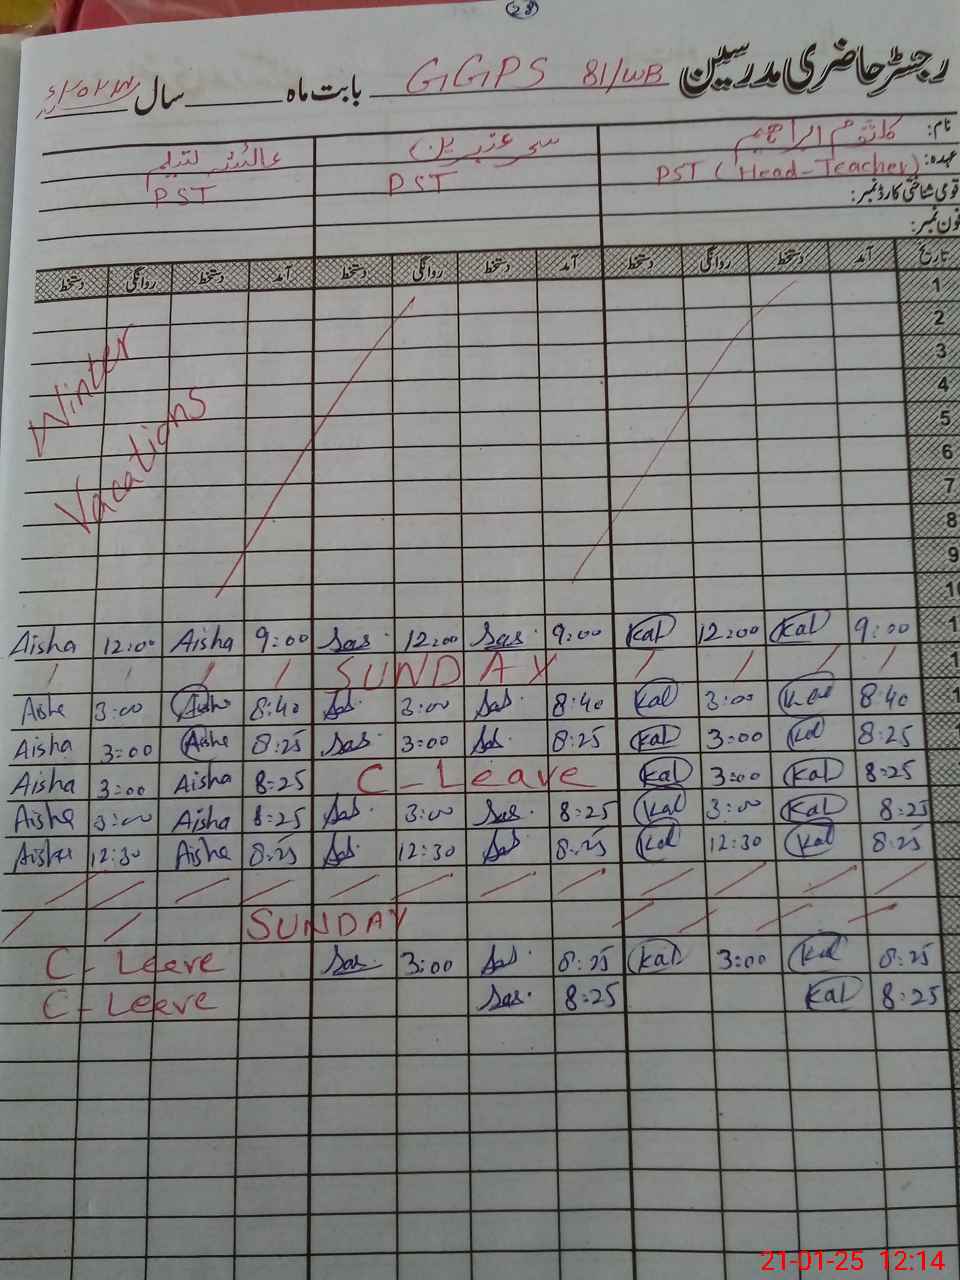 28
رجسٹر حاضری مدرسین GGPS 81/WB بابت ماہ سال
نام: کلثوم ابراہیم سحر عنبرین عائشہ
عہدہ: PST (Head-Teacher) PST PST
قومی شناختی کارڈ نمبر:
فون نمبر:
تاریخ آمد دستخط روانگی دستخط آمد دستخط روانگی دستخط آمد دستخط روانگی دستخط
1
2
3
4
5
6
7
8
9
10
Winter
Vacations
Aisha 12:00 Aisha 9:00 Sas 12:00 Sas 9:00 Kal 12:00 Kal 9:00 1
SUNDAY 1
Aisha 3:00 Aisha 8:40 Sas 3:00 Sas 8:40 Kal 3:00 Kal 8:40 1
Aisha 3:00 Aisha 8:25 Sas 3:00 Sas 8:25 Kal 3:00 Kal 8:25
Aisha 3:00 Aisha 8:25 C-Leave Kal 3:00 Kal 8:25
Aisha 3:00 Aisha 8:25 Sas 3:00 Sas 8:25 Kal 3:00 Kal 8:25
Aisha 12:30 Aisha 8:25 Sas 12:30 Sas 8:25 Kal 12:30 Kal 8:25
SUNDAY
C-Leave Sas 3:00 Sas 8:25 Kal 3:00 Kal 8:25
C-Leave Sas 8:25 Kal 8:25
21-01-25 12:14